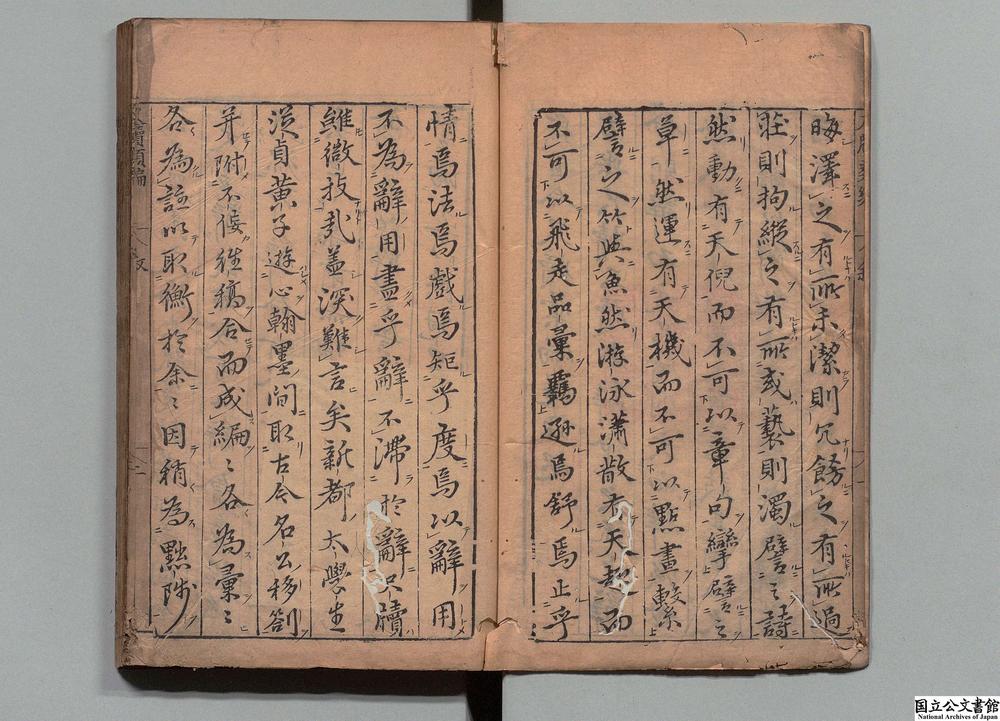 晦澤之有所未潔則冗餝之有所過
莊則拘縱之有所或褻則濁譬之詩
然動有天倪而不可以章句攣譬之
草然運有天機而不可以點畫繫
譬之竺與魚然游泳瀟散有天趣而
不可以飛走品彙羈遜焉舒焉止乎
情焉法焉戲焉矩乎度焉以辭用
不為辭用盡乎辭不滯於辭只牘
雖微技哉蓋深難言矣新都太學生
從貞黃子遊心翰墨間取古今名公移劄
并附不佞往稿合而成編編各為彙彙
各為註以取衡於余余因稍為點陟
國立公文書館
National Archives of Japan